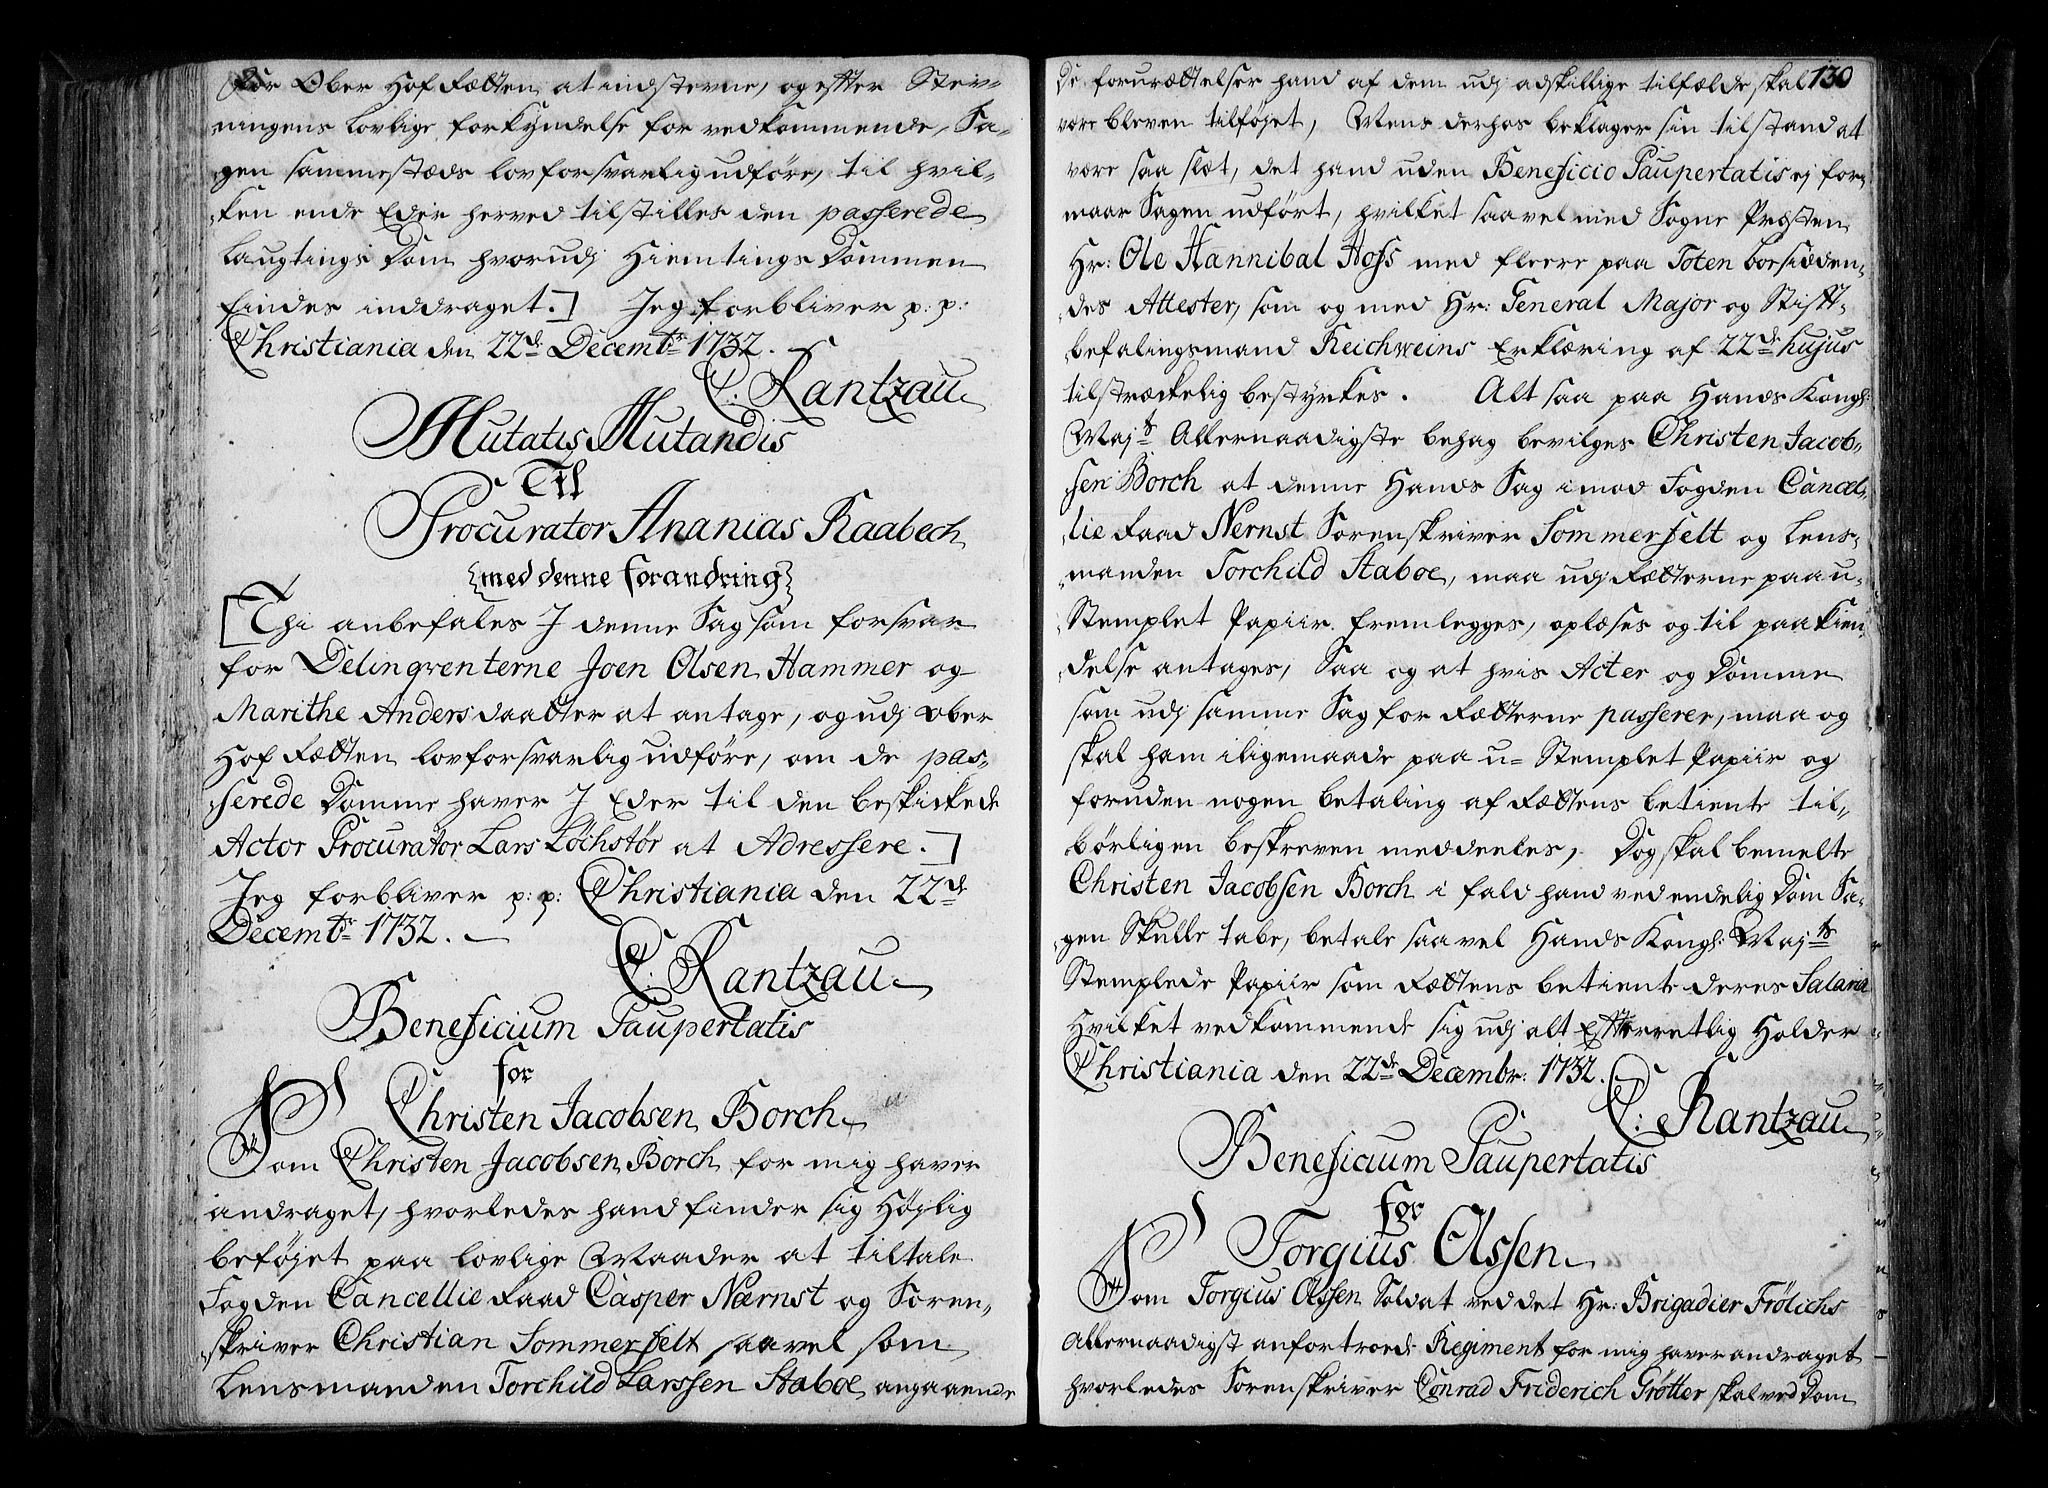 for Ober Hof Rætten at indsterne, og efter Stev-
ningens Lovlige forkyndelse for vedkommende, Sa-
gen sammestæds lovforsvarlig udføre, til hvil-
ken ende Eder herved tilstilles den passerede
Laugtings Dom hvorudj Hiemtings Dommen
findes inddraget.] Jeg forbliver p: p:
Christiania den 22de Decembr 1732.
C: Rantzau
Mutatis Mutandis
Til
Procurator Ananias Raabech
{med denne forandring}
[Thi anbefales I denne Sag som forsvar
for Delinqventerne Joen Olsen Hammer og
Marithe Andersdaatter at antage, og udj Ober
Hof Rætten lovforsvarlig udføre, om de pas-
serede Domme haver I Eder til den beskickede
Actor Procurator Lars Löchstör at Adressere.]
Jeg forbliver p: p: Christiania den 22de
Decembr 1732.
C: Rantzau
Beneficium Paupertatis
for
Christen Jacobsen Borch
Som Christen Jacobsen Borch for mig haver
andraget, hvorledes hand finder sig Høylig
beføyet paa lovlige Maader at tiltale
Fogden Cancellie Raad Casper Nærnst og Soren-
skriver Christian Sommerfelt saavel som
Lensmanden Torchild Larssen Staboe angaaende
130
de forurættelser hand af dem udj adskillige tilfælde skal
være bleven tilføyet, Mens derhos beklager sin tilstand at
være saa slæt, det hand uden Beneficio Paupertatis ej for-
maar Sagen udført, hvilket saavel med Sogne Præsten
Hr: Ole Hannibal Hoss med fleere paa Toten boesidden-
des Attester, som og med Hr: General Major og Stift-
befalingsmand Reichweins Erklæring af 22de hujus
tilstræckelig bestyrkes. Alt saa paa Hands Kongl:
Majts Allernaadigste behag bevilges Christen Jacob-
sen Borch at denne Hands Sag imod Fogden Cancel-
lie Raad Nernst Sorenskriver Sommerfelt og Lens-
manden Torchild Staboe, maa udj Rætterne paa u-
Stemplet Papiir fremlegges, oplæses og til paakien-
delse antages, Saa og at hvis Acter og Domme
som udj samme Sag for Rætterne passerer, maa og
skal ham iligemaade paa u- Stemplet Papiir og
foruden nogen betaling af Rættens betiente til-
børligen beskreven meddeeles, Dog skal bemelte
Christen Jacobsen Borch i fald hand ved endelig Dom Sa-
gen Skulle tabe, betale saavel Hands Kongl: Majts
Stemplede Papiir som Rættens betiente deres Salaria
Hvilket vedkommende sig udj alt Efterretlig Holder
Christiania den 22de Decembr: 1732.
C: Rantzau
Beneficium Paupertatis
for
Torgius Olssen
Som Torgius Olssen Soldat ved det Hr: Brigadier Frölichs
Allernaadigst anfortroede Regiment for mig haver andraget
hvorledes Sorenskriver Conrad Friderich Grötter skal ved Dom